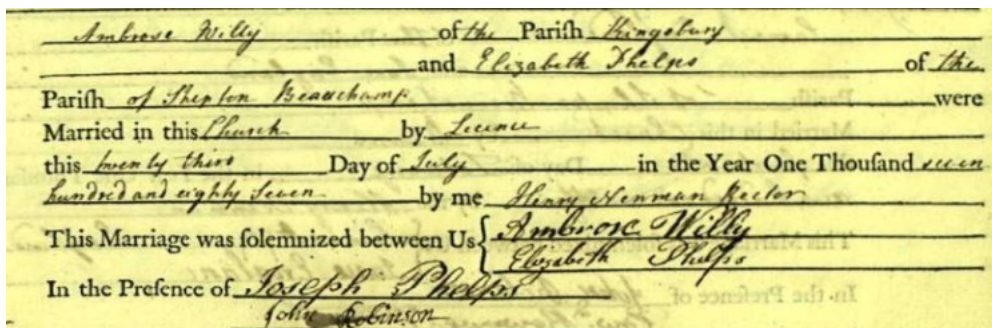 Ambrose Willy of the Pariſh Kingsbury
and Elizabeth Phelps of the
Pariſh of Shepton Beauchamp were
Married in this Church by Licence
this twenty third Day of July in the Year One Thouſand seven
hundred and eighty seven by me Henry Nenman Rector
This Marriage was ſolemnized between Us { Ambrose Willy
Elizabeth Phelps
In the Preſence of Joseph Phelps
John Robinson